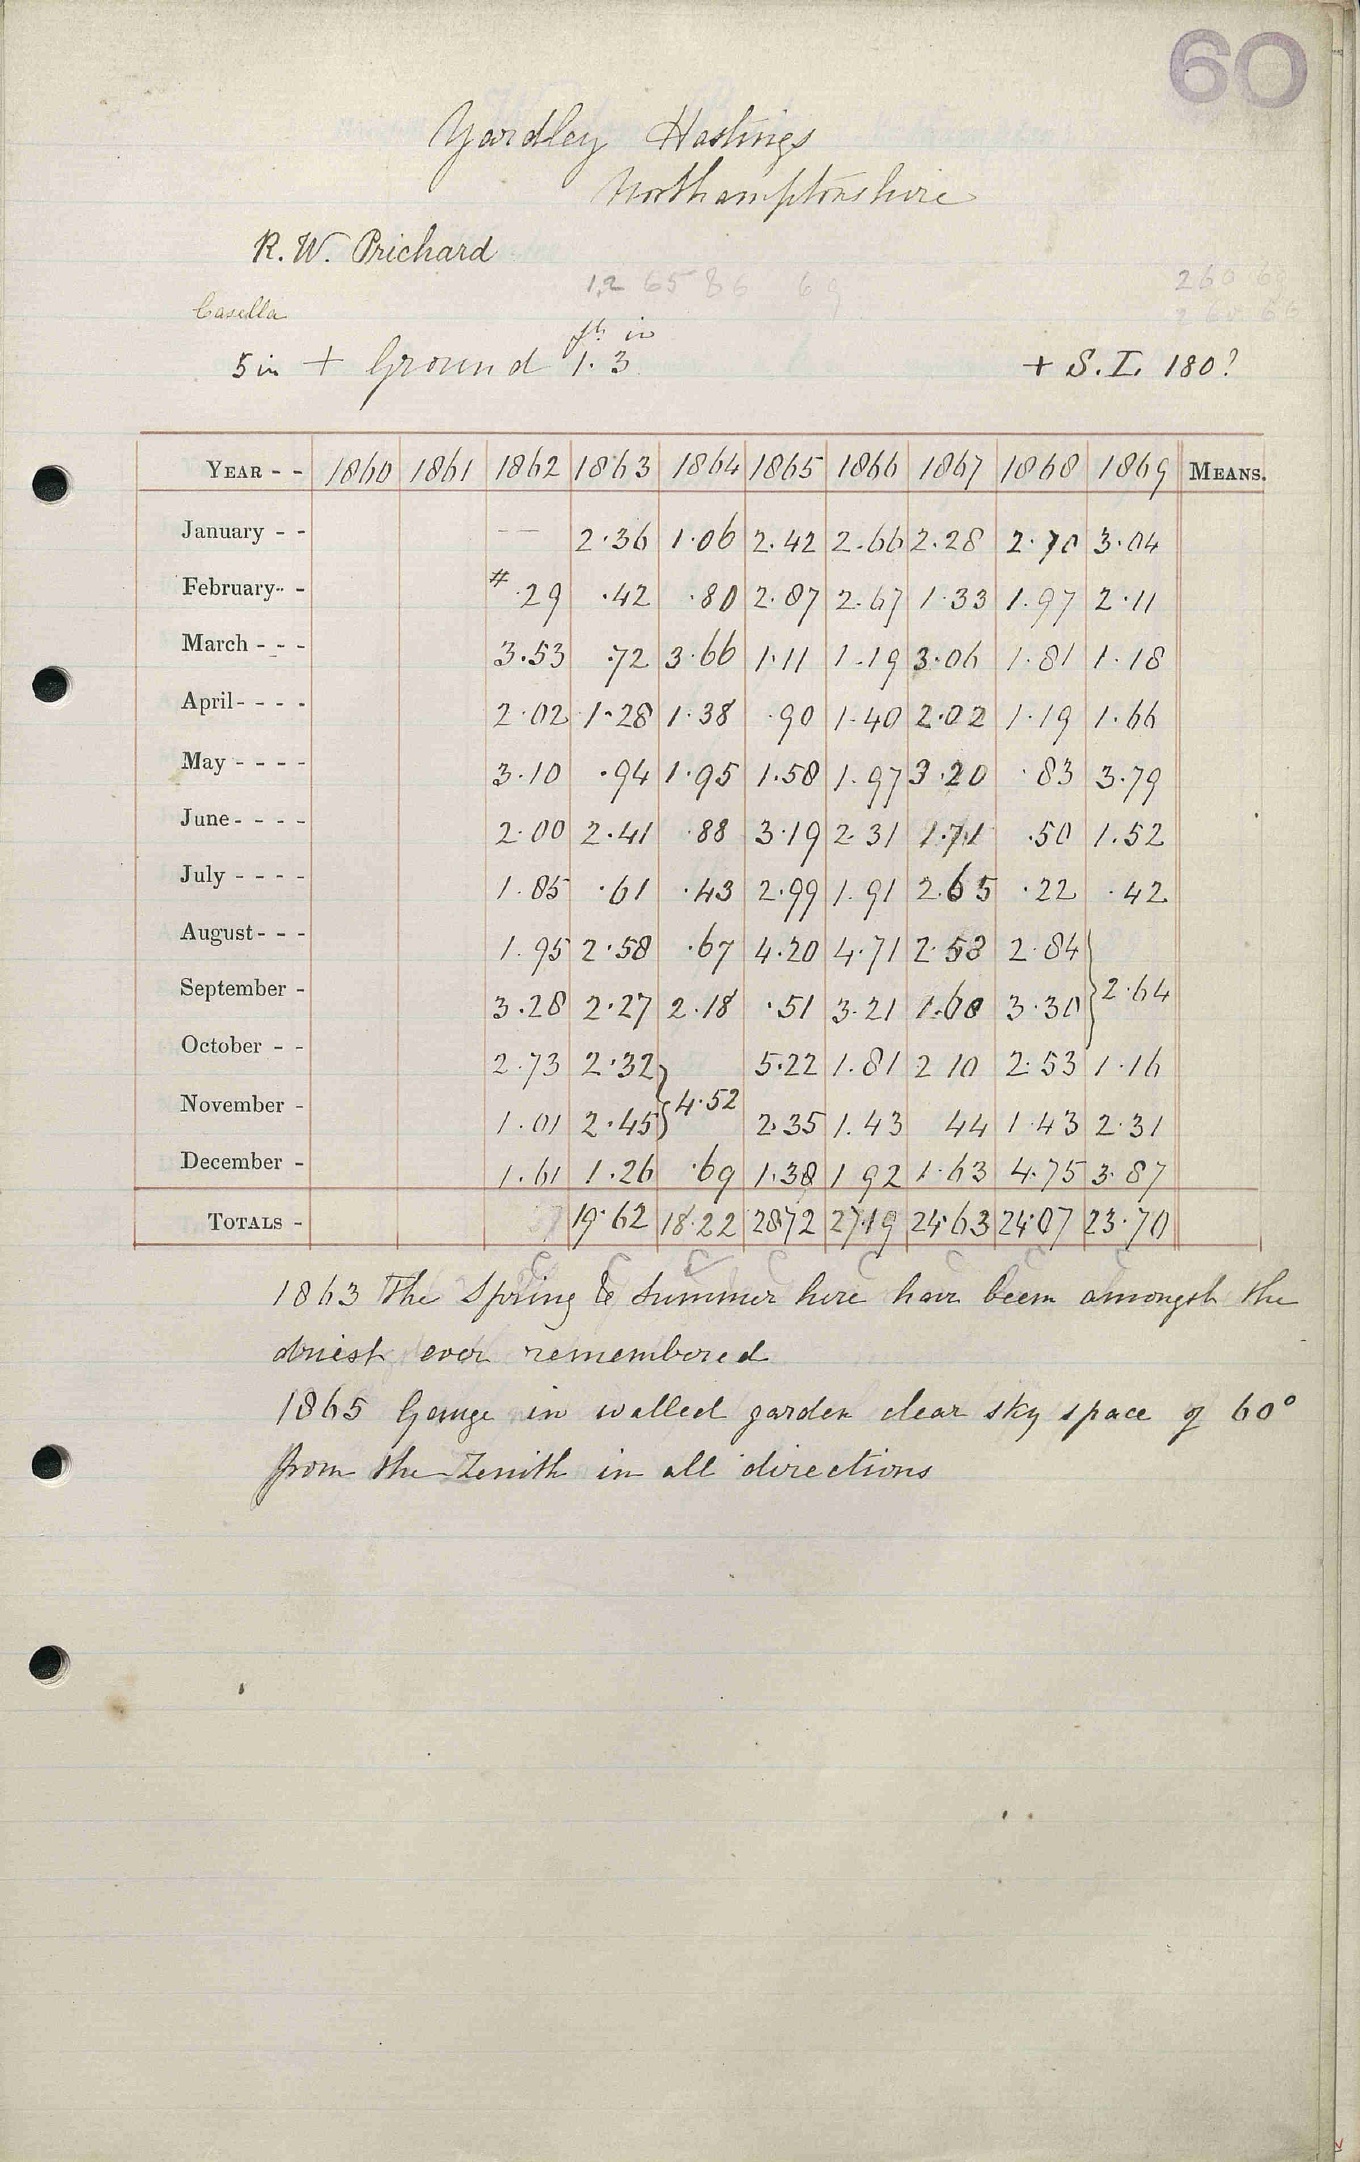 60
Yardley Hastings
Northamptonshire
R. W. Prichard
12 65 86 69
260 6
260 66
Casella
ft in
5 in + Ground 1. 3 + S.L. 180?
YEAR - - 1860 1861 1862 1863 1864 1865 1866 1867 1868 1869 MEANS.
January - - — 2.36 1.06 2.42 2.66 2.28 2.70 3.04
February - - # .29 .42 .80 2.87 2.67 1.33 1.97 2.11
March - - - 3.53 .72 3.66 1.11 1.19 3.06 1.81 1.18
April - - - - 2.02 1.28 1.38 .90 1.40 2.02 1.19 1.66
May - - - - 3.10 .94 1.95 1.58 1.97 3.20 .83 3.79
June - - - - 2.00 2.41 .88 3.19 2.31 1.71 .50 1.52
July - - - - 1.85 .61 .43 2.99 1.91 2.65 .22 .42
August - - - 1.95 2.58 .67 4.20 4.71 2.53 2.84
September - 3.28 2.27 2.18 .51 3.21 1.68 3.30 } 2.64
October - - 2.73 2.32 5.22 1.81 2 10 2.53 1.16
November - 1.01 2.45 } 4.52 2.35 1.43 44 1.43 2.31
December - 1.61 1.26 .69 1.38 1 92 1.63 4.75 3.87
TOTALS - 19.62 18.22 28.72 27.19 24.63 24.07 23.70
C C C C C C C C
1863 The Spring & Summer here have been amongst the
driest ever remembered
1865 Gauge in walled garden clear sky space of 60°
from the Zenith in all directions